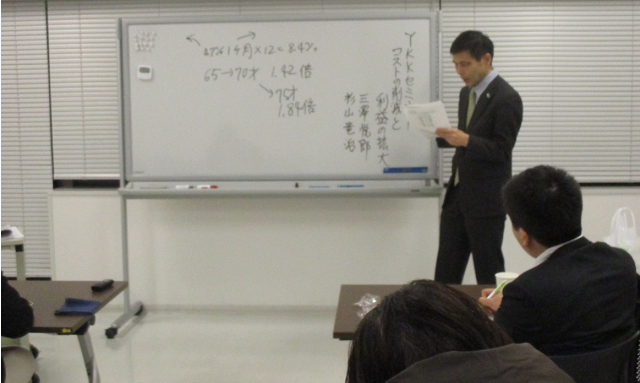 0.7% 1ヶ月×12=8.4%
65→70才 1.42倍
70才
1.84倍
YKKセミナー
コストの削減と
利益の拡大
杉山